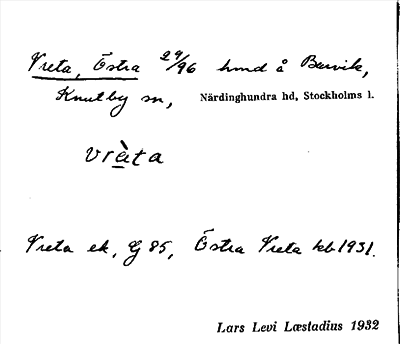 Vreta, Östra 29/96 hmd å Burvik,
Knutby sn, Närdinghundra hd, Stockholms l.
vràta
Vreta ek, G 85, Östra Vreta kb 1931.
Lars Levi Læstadius 1932